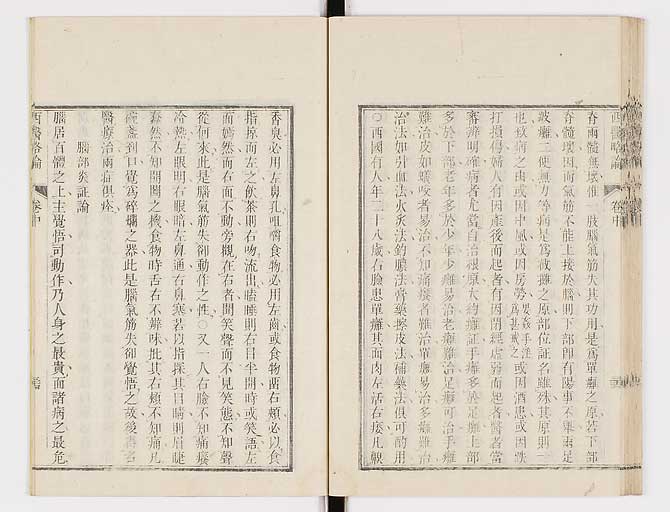 脊兩髓無壞惟一肢腦氣筋失其功用是爲單癱之原若下部
脊髓壞因而氣筋不能上接於腦則下部卽有陽事不舉兩足
皷癱二便無力等病是爲彼攤之原部位証名雖殊其原則一
也致病之由或因中風或因房勞或因酒患或因跌
打損傷婦人有因產後而起者有因閉經虛弱而起者醫者當
審辨明確病者尤當自治根原大約癱証手癱多於足癱上部
多於下部老年多於少年少癱易治老癱難治足癱可治手癱
難治皮如蟻咬者易治不知痛癢者難治單癱易治多癱難治
治法如引血法火炙法釣膿法膏藥擦皮法補藥法俱可酌用
○西國有人年二十八歲右臉患單癱其面肉左活右痿凡嗅
西醫略論
卷中
香臭必用左鼻孔咀嚼食物必用左齒或食物兩右頰必以食
指撩而左之飲茶則右吻流出瞌睡則右目半開時或笑語左
面嫣然而右面不動旁觀在右者聞笑聲而不見笑態不知聲
從何來此是腦氣筋失卻動作之性○又一人右臉不知痛癢
冷熱左眼明右眼暗左鼻通右鼻塞若以指探其日睛則眉睫
蠢然不知開闔之機食物時舌右不辨味批其右頰不知痛凡
茶盞到口覺爲碎爛之器此是腦氣筋失卻覺悟之故後
醫療治兩症俱痊
腦部炎証論
腦居百體之上主覺悟司動作乃人身之最貴而諸病之最危
西醫略論
卷中